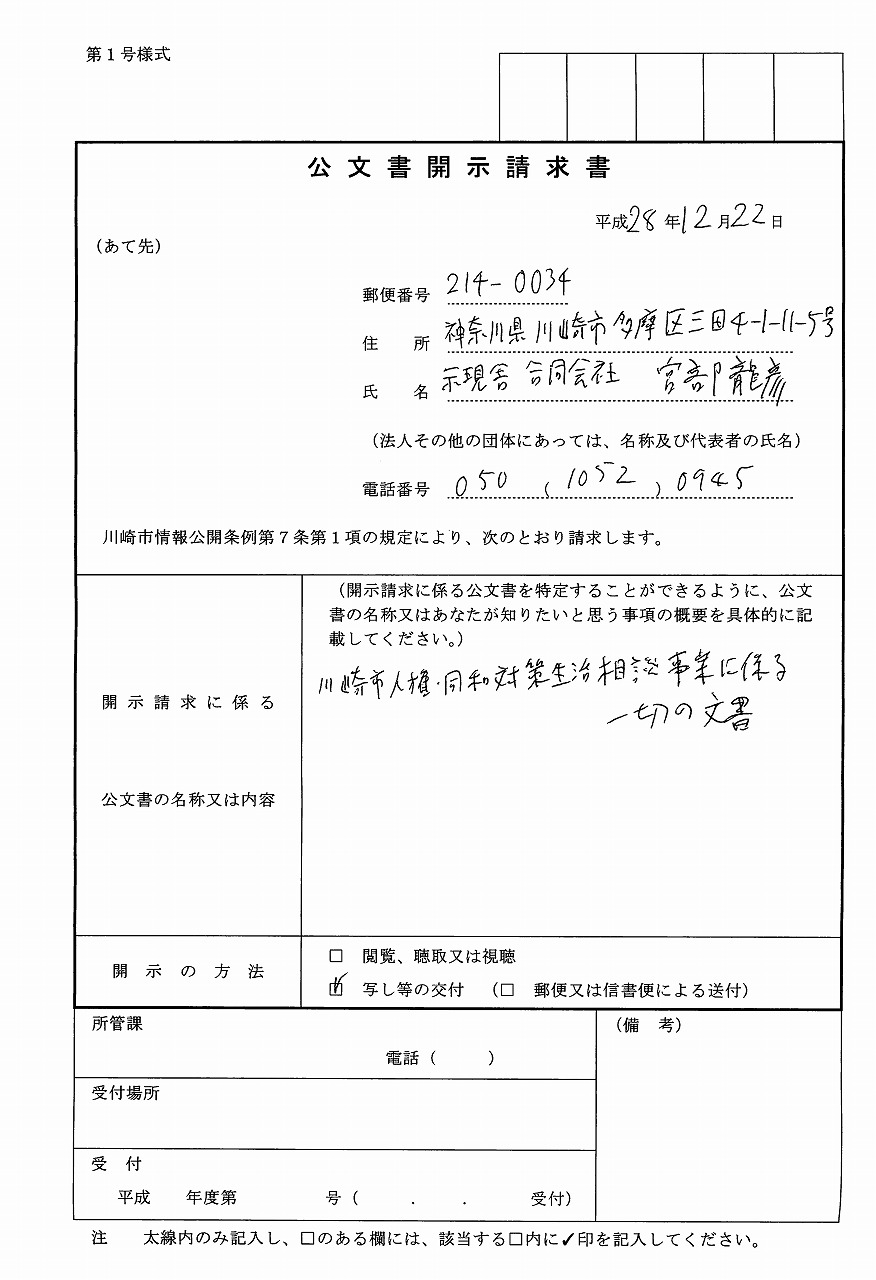 第1号様式
公文書開示請求書
平成28年12月22日
(あて先)
郵便番号 214-0034
住所 神奈川県川崎市多摩区三田4-1-11-5号
氏名 示現舎合同会社 宮部龍彦
(法人その他の団体にあっては、名称及び代表者の氏名)
電話番号 050 ( 1052 ) 0945
川崎市情報公開条例第7条第1項の規定により、次のとおり請求します。
開示請求に係る
公文書の名称又は内容
(開示請求に係る公文書を特定することができるように、公文
書の名称又はあなたが知りたいと思う事項の概要を具体的に記
載してください。)
川崎市人権・同和対策生活相談事業に係る
一切の文書
開示の方法
□ 閲覧、聴取又は視聴
☑ 写し等の交付 (□ 郵便又は信書便による送付)
所管課
電話( )
(備考)
受付場所
受付
平成 年度第 号( . . 受付)
注 太線内のみ記入し、□のある欄には、該当する□内に✓印を記入してください。